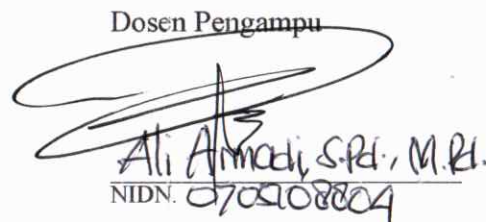 Dosen Pengampu
Ali Armadi, S.Pd., M.Pd.
NIDN. 0705108804